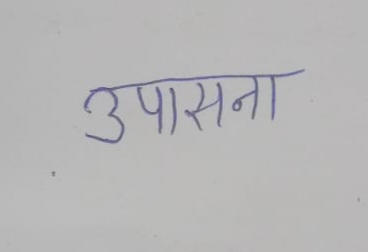 उपासना